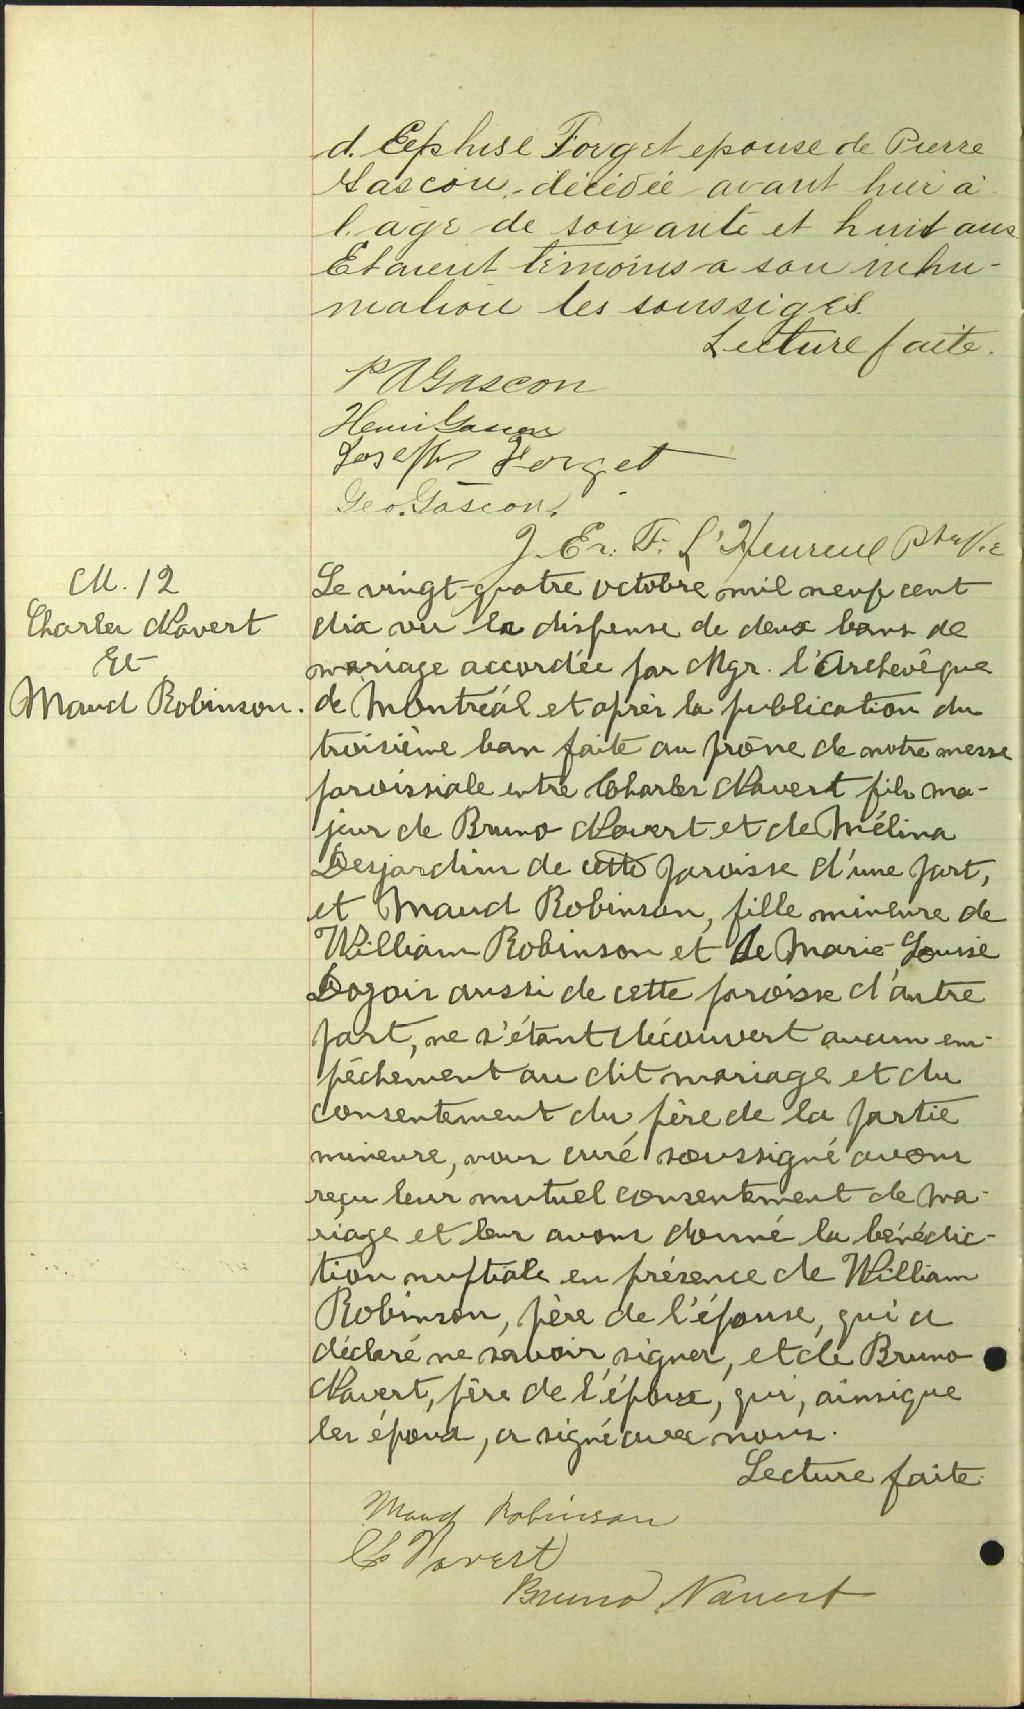 d. Cephise Forget epouse de Pierre
Gascon, décédée avant hier à
l'age de soixante et huit ans
Etaient témoins a son inhu-
mation les soussigés.
Lecture faite.
P A Gascon
Henri Gascon
Joseph Forget
Geo. Gascon.
J. Er. F. L'Heureux Ptre
M. 12
Charles Navert
Et
Maud Robinson.
Le vingt-quatre octobre mil neuf cent
dix vu la dispense de deux bans de
mariage accordée par Mgr. l'Archevêque
de Montréal et après la publication du
troisième ban faite au prône de notre messe
paroissiale entre Charles Navert fils ma-
jeur de Bruno Navert et de Mélina
Desjardins de cette paroisse d'une part,
et Maud Robinson, fille mineure de
William Robinson et de Marie-Louise
Dozois aussi de cette paroisse d'autre
part, ne s'étant découvert aucun em-
pêchement au dit mariage et du
consentement du père de la partie
mineure, nous curé soussigné avons
reçu leur mutuel consentement de ma-
riage et leur avons donné la bénédic-
tion nuptiale en présence de William
Robinson, père de l'épouse, qui a
déclaré ne savoir signer, et de Bruno
Navert, père de l'époux, qui, ainsi que
les époux, a signé avec nous.
Lecture faite.
Maud Robinson
Navert
Bruno Navert